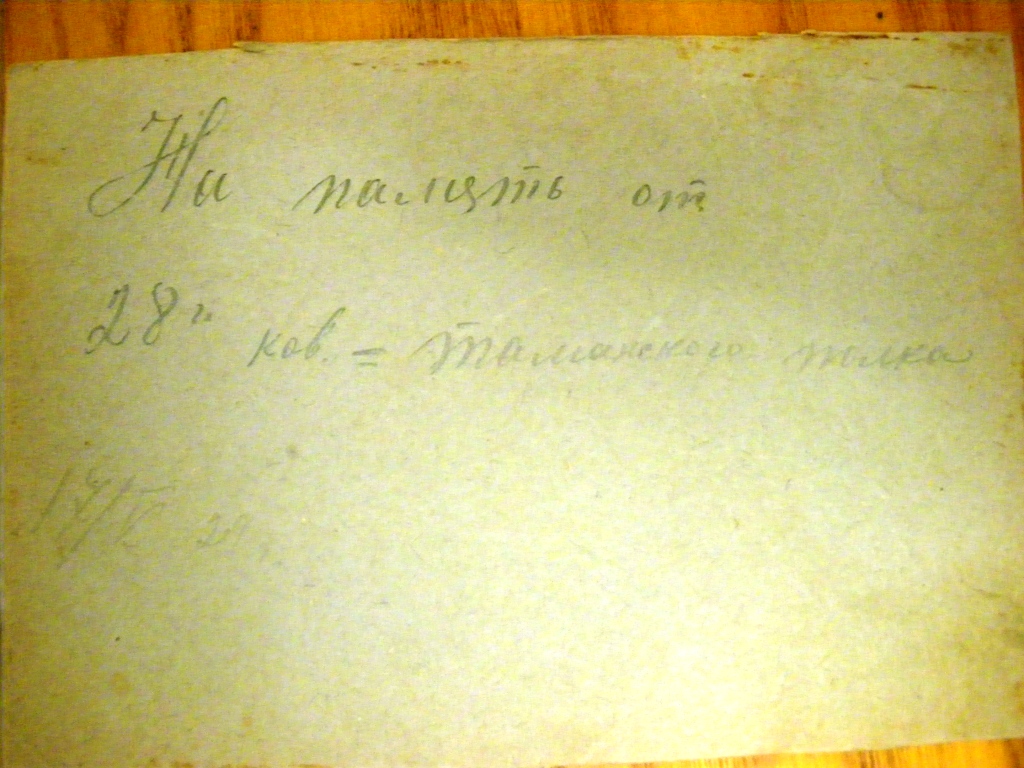 На память от
28й ков. = Таманского полка
17/V 29